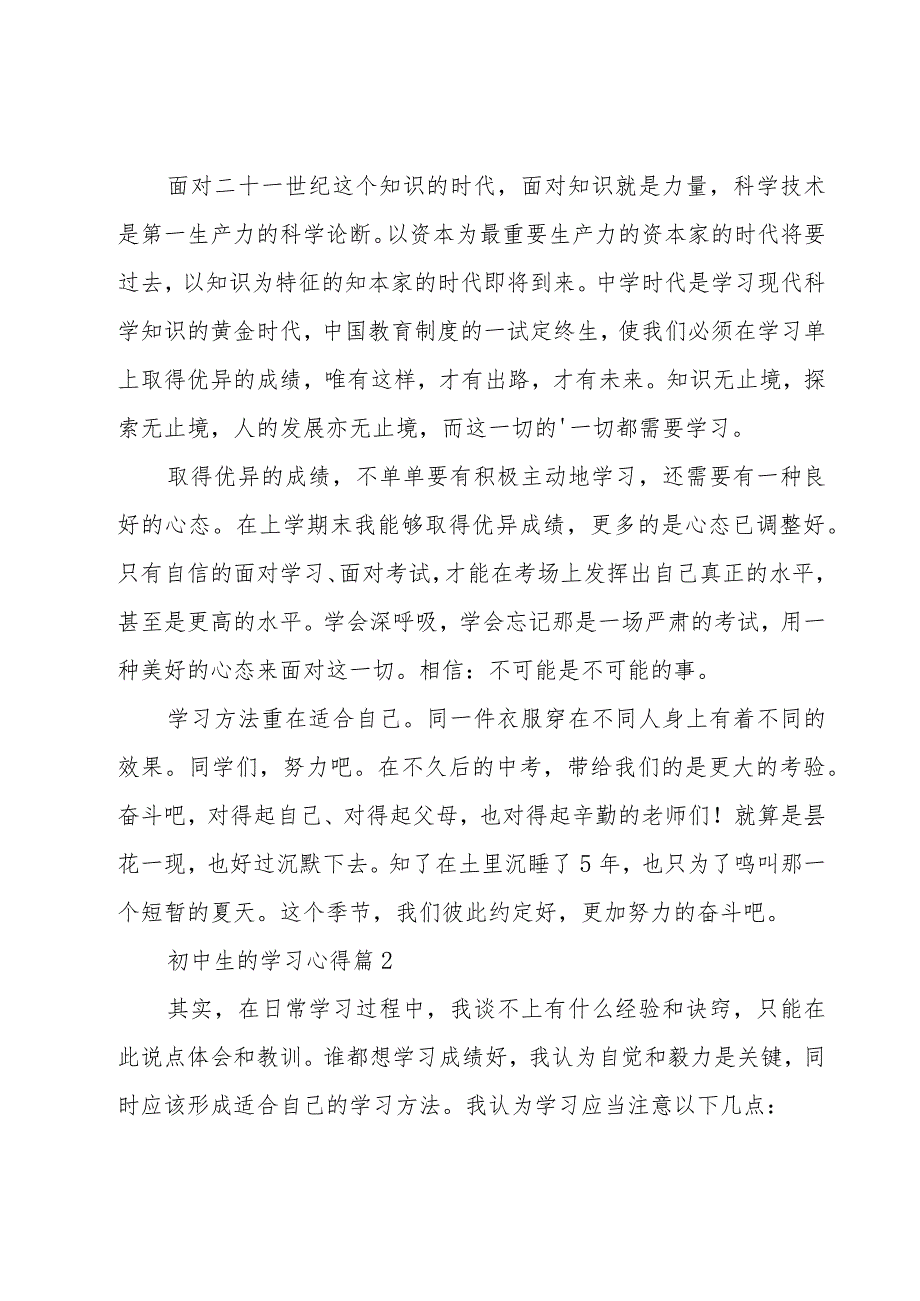 面对二十一世纪这个知识的时代，面对知识就是力量，科学技术
是第一生产力的科学论断。以资本为最重要生产力的资本家的时代将要
过去，以知识为特征的知本家的时代即将到来。中学时代是学习现代科
学知识的黄金时代，中国教育制度的一试定终生，使我们必须在学习单
上取得优异的成绩，唯有这样，才有出路，才有未来。知识无止境，探
索无止境，人的发展亦无止境，而这一切的'一切都需要学习。
取得优异的成绩，不单单要有积极主动地学习，还需要有一种良
好的心态。在上学期末我能够取得优异成绩，更多的是心态已调整好。
只有自信的面对学习、面对考试，才能在考场上发挥出自己真正的水平，
甚至是更高的水平。学会深呼吸，学会忘记那是一场严肃的考试，用一
种美好的心态来面对这一切。相信：不可能是不可能的事。
学习方法重在适合自己。同一件衣服穿在不同人身上有着不同的
效果。同学们，努力吧。在不久后的中考，带给我们的是更大的考验。
奋斗吧，对得起自己、对得起父母，也对得起辛勤的老师们！就算是昙
花一现，也好过沉默下去。知了在土里沉睡了5年，也只为了鸣叫那一
个短暂的夏天。这个季节，我们彼此约定好，更加努力的奋斗吧。
初中生的学习心得篇2
其实，在日常学习过程中，我谈不上有什么经验和诀窍，只能在
此说点体会和教训。谁都想学习成绩好，我认为自觉和毅力是关键，同
时应该形成适合自己的学习方法。我认为学习应当注意以下几点：